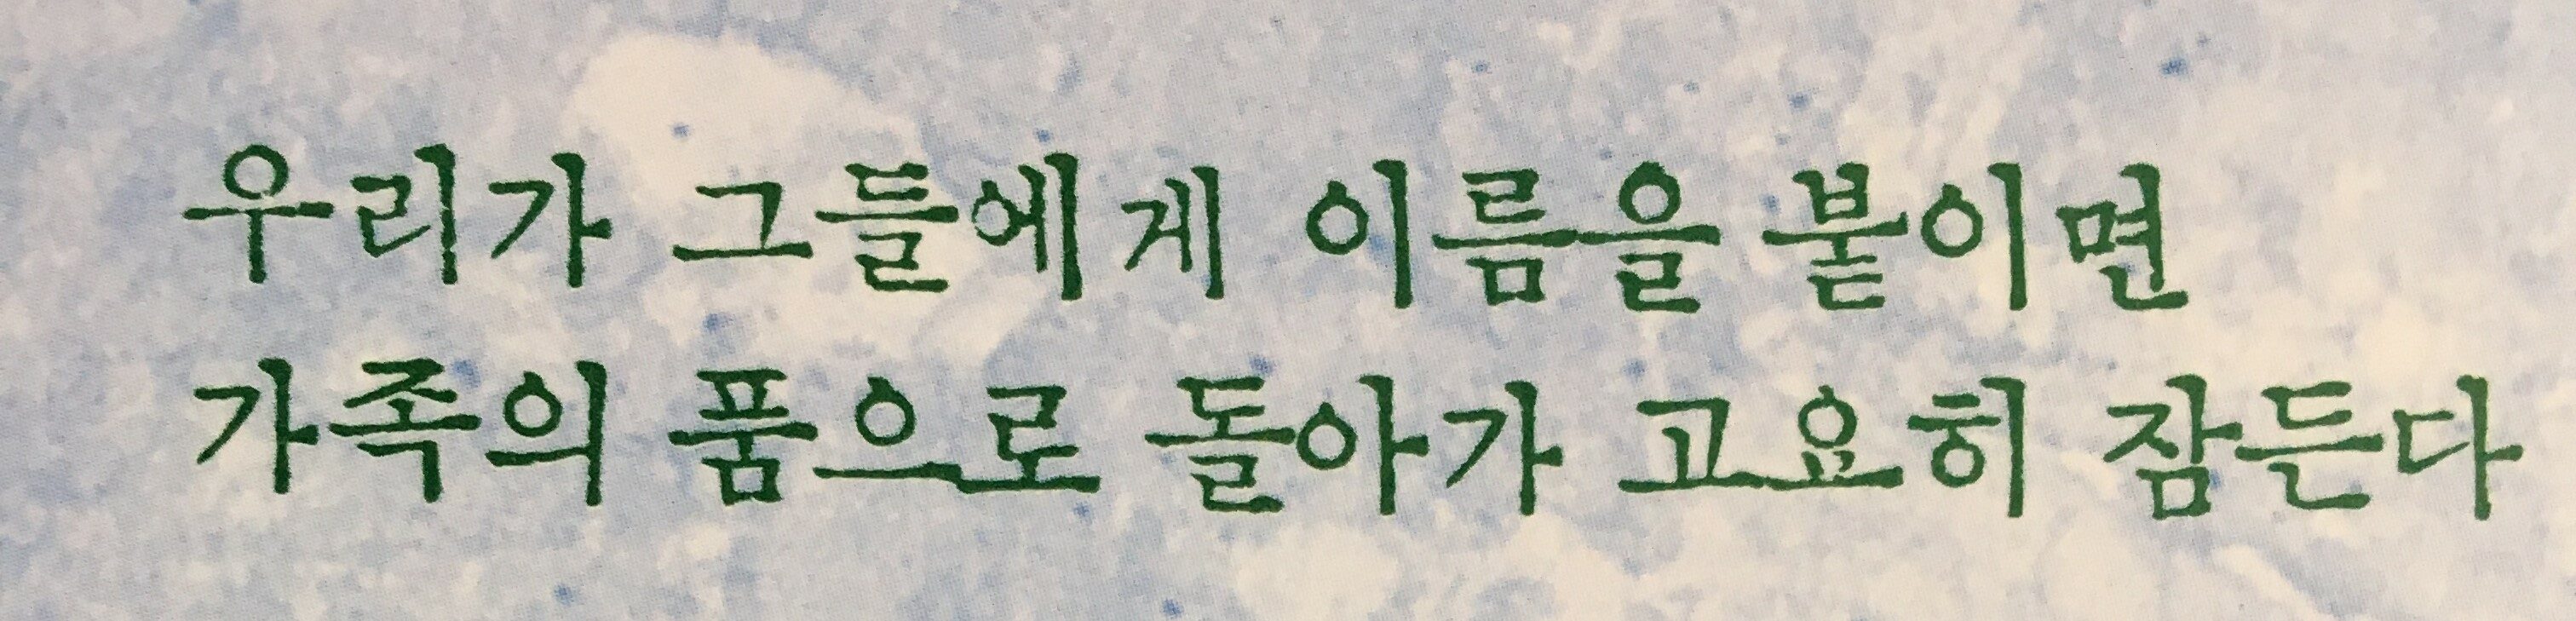 우리가 그들에게 이름을 붙이면
가족의 품으로 돌아가 고요히 잠든다